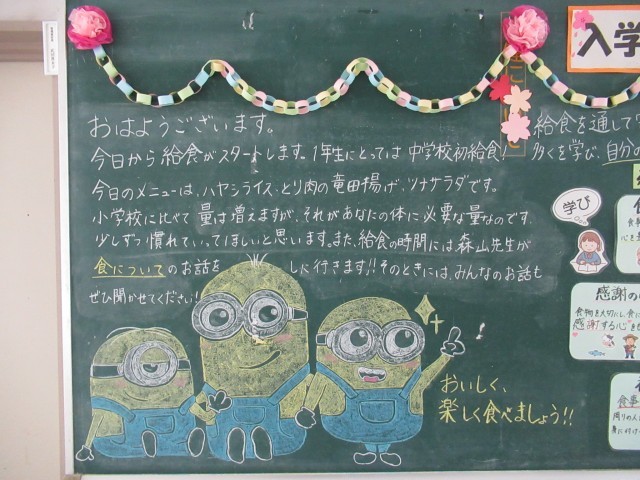 おはようございます。
今日から給食がスタートします。1年生にとっては中学校初給食!
今日のメニューは、ハヤシライス、とり肉の竜田揚げ、ツナサラダです。
小学校に比べて量は増えますが、それがあなたの体に必要な量なのです。
少しずつ慣れていってほしいと思います。また、給食の時間には森山先生が
食についてのお話をしに行きます!!そのときには、みんなのお話も
ぜひ聞かせてください!
おいしく、
楽しく食べましょう!!
入学
給食を通して
多くを学び、自分の
学び
感謝の
食物を大切にし、食に
感謝する心
食事